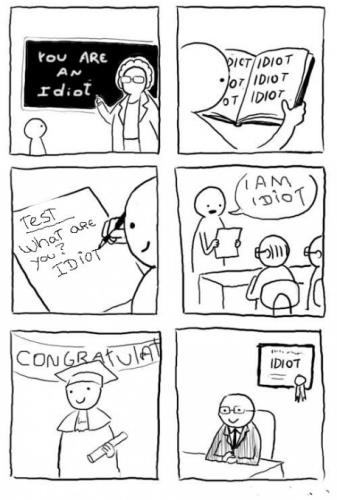 YOU ARE
AN
IdioT
DICT IDIOT
OT IDIOT
OT IDIOT
TEST
What ARE
you?
IDIOT
I AM
IDIOT
CONGRATULAT
IDIOT